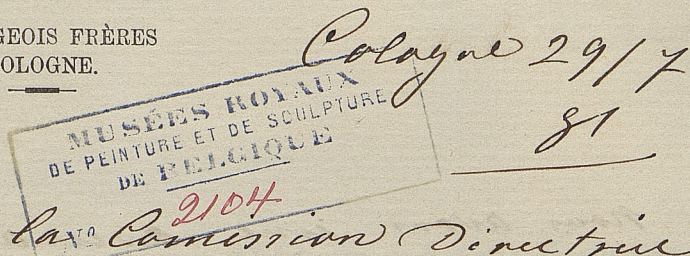 GEOIS FRÈRES
OLOGNE.
Cologne 29/7
81
MUSÉES ROYAUX
DE PEINTURE ET DE SCULPTURE
DE BELGIQUE
No 2104
la Comission Directrice